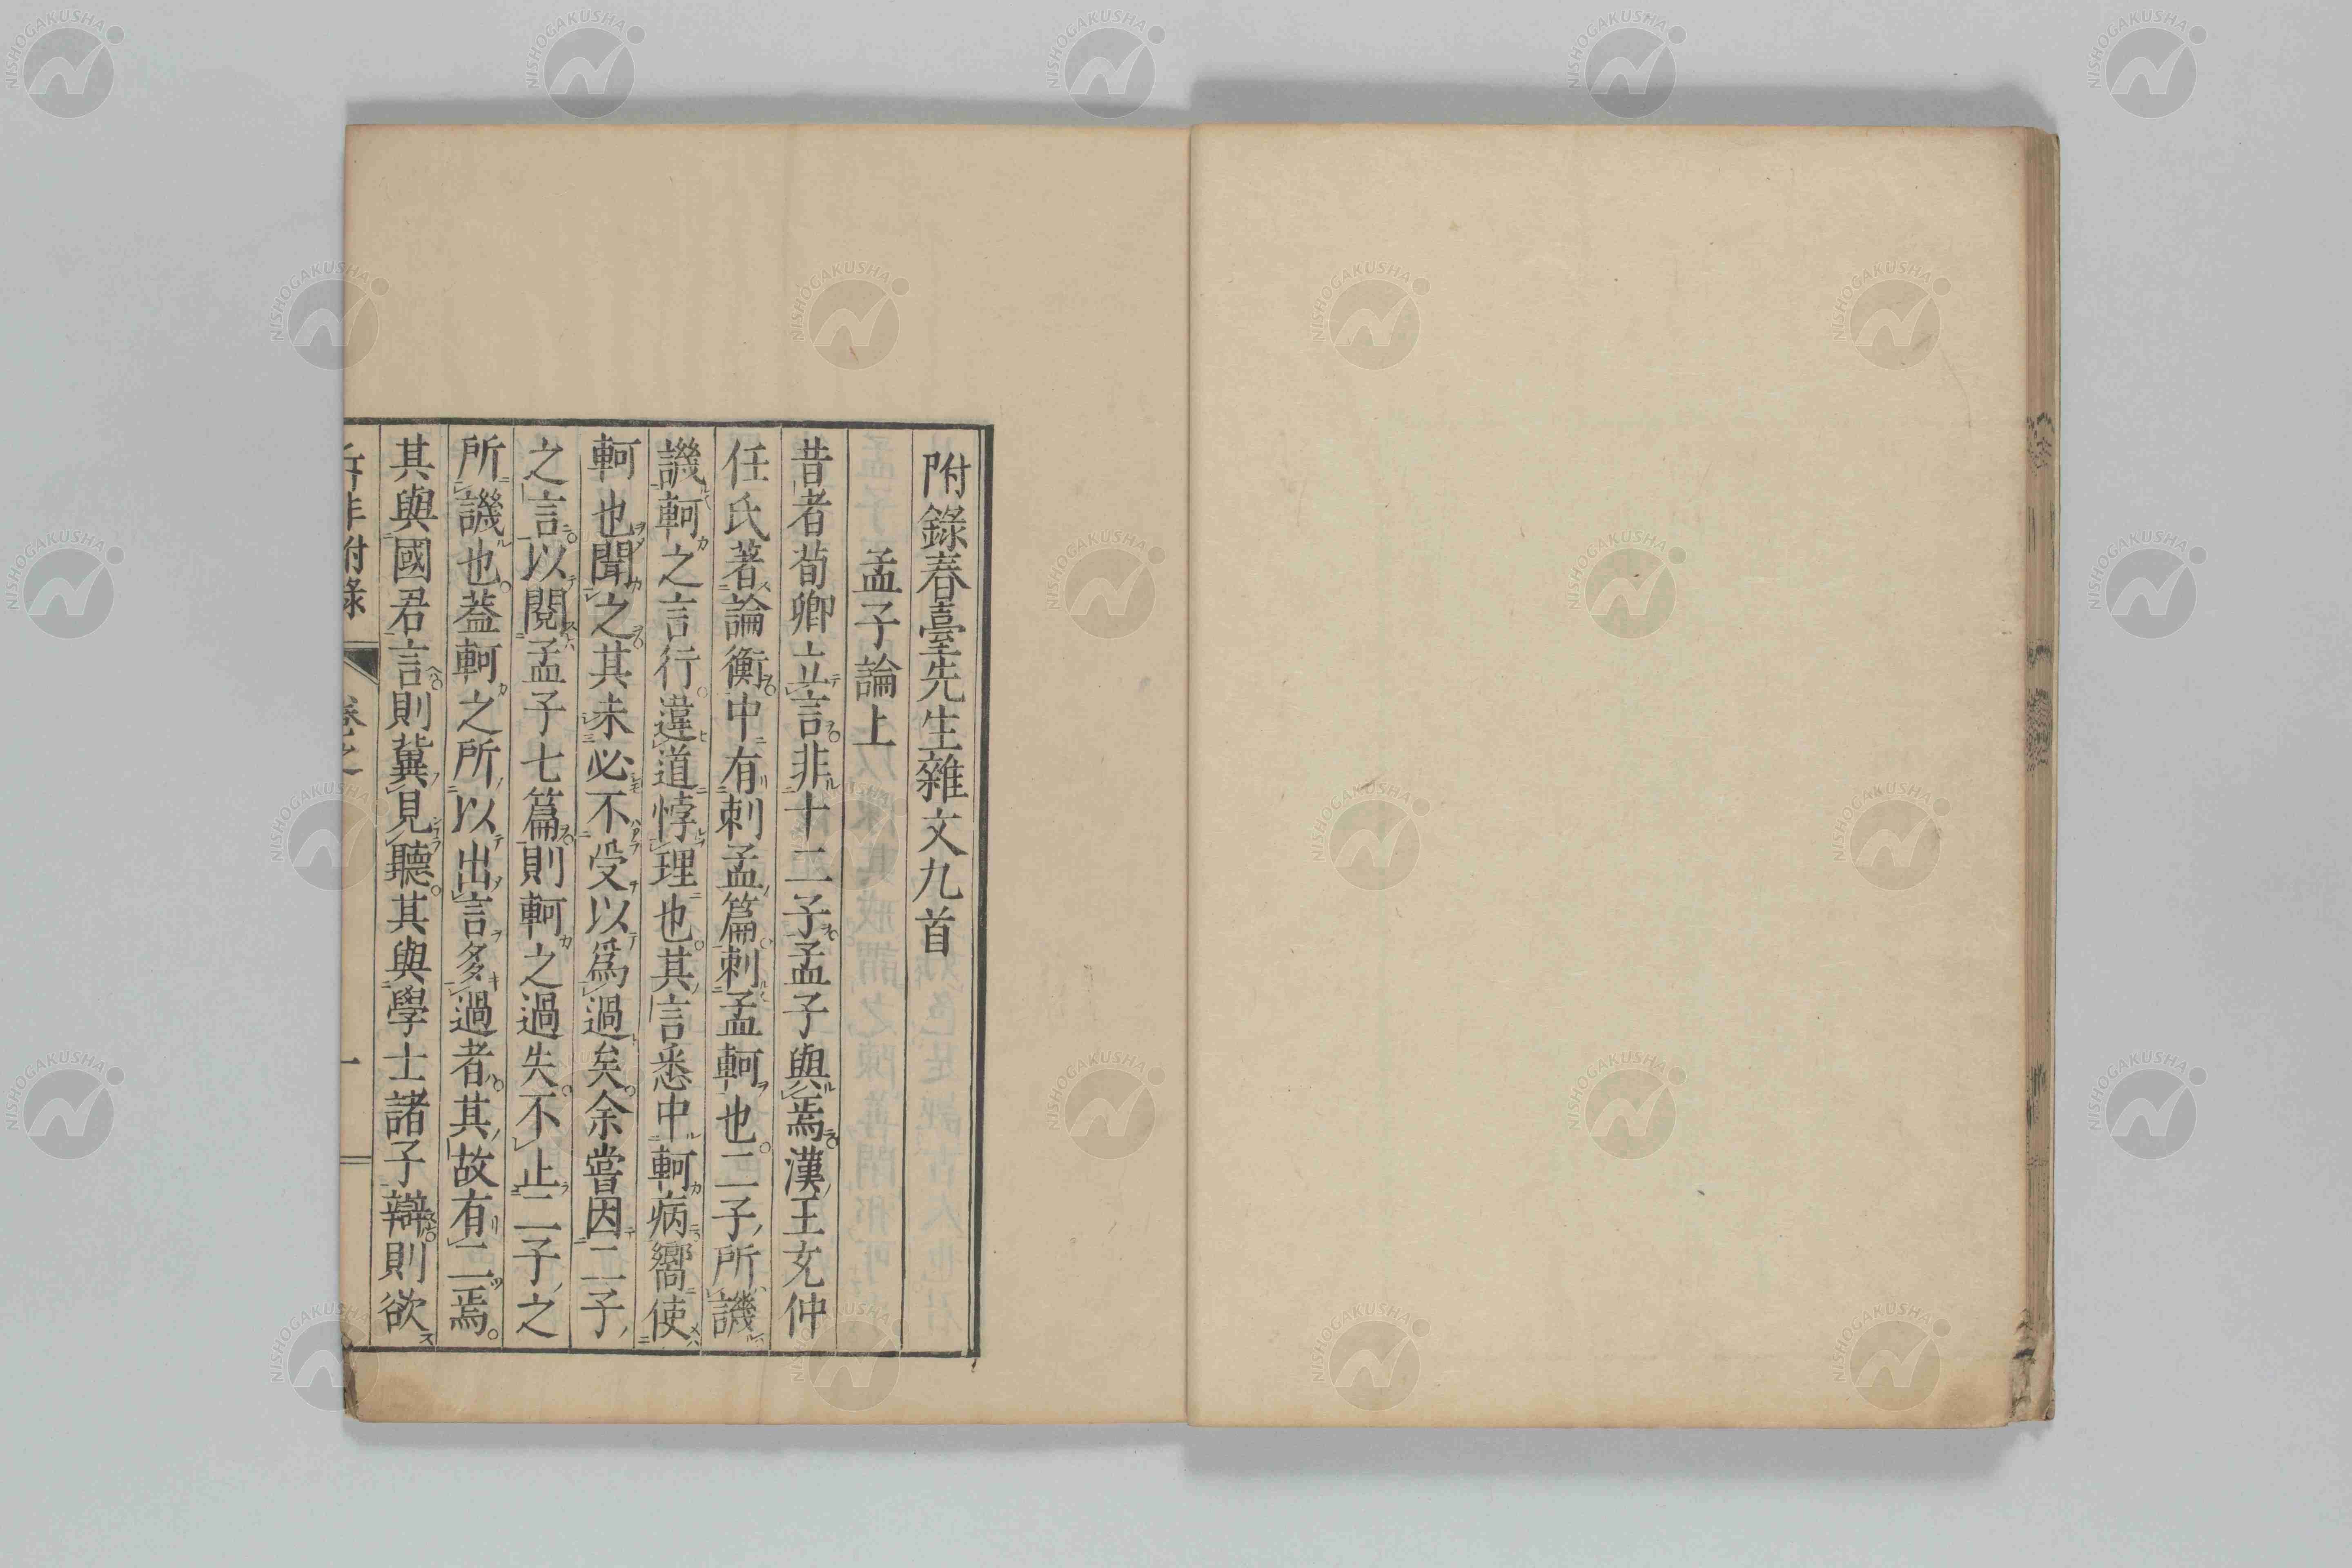 附錄春臺先生雜文九首
孟子論上
昔者荀卿立言非十二子孟子與焉漢王充仲
任氏著論衡中有刺孟篇刺孟軻也二子所譏
譏軻之言行違道悖理也其言悉中軻病嚮使
軻也聞之其未必不受以爲過矣余嘗因二子
之言以閱孟子七篇則軻之過失不止二子之
所譏也蓋軻之所以出言多過者其故有二焉
其與國君言則冀見聽其與學士諸子辯則欲
斥非附錄 卷之 一
NISHOGAKUSHA